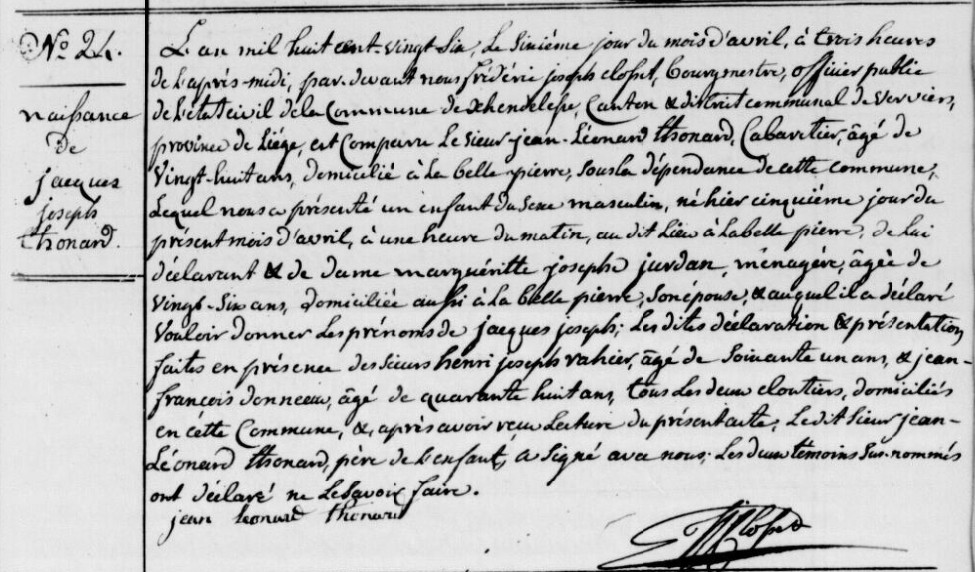 N.º 24.
naissance
De
jacques
joseph
thonard.
L'an mil huit cent-vingt-Six, Le Sixième jour du mois d'avril, à trois heures
de L'après-midi, par-devant nous frédéric joseph Closset, bourgmestre, officier public
de L'état civil de la Commune de Xhendelesse, Canton & district communal de Verviers,
province de Liége, est Comparu Le Sieur jean-Léonard thonard, Cabaretier, âgé de
Vingt-huit ans, domicilié à La belle-pierre, Sous la dépendance de cette commune,
Lequel nous a présenté un enfant du Sexe masculin, né hier cinquième jour du
présent mois d'avril, à une heure du matin, au dit Lieu à La belle pierre, de Lui
déclarant & de dame marguéritte josephe jurdan, ménagère, âgée de
Vingt-Six ans, domiciliée aussi à La belle pierre, Son épouse, & auquel il a déclaré
Vouloir donner Les prénoms de jacques joseph; Les dites déclaration & présentation,
faites en présence des Sieurs henri joseph rahier, âgé de Soixante un ans, & jean-
françois donneux, âgé de quarante huit ans, tous Les deux cloutiers, domiciliés
en cette Commune, &, après avoir reçu Lecture du présent acte, Le dit Sieur jean-
Léonard thonard, père de L'enfant, a Signé avec nous; Les deux témoins Sus-nommés
ont déclaré ne Le Savoir faire.
jean leonard thonard
FJClosset